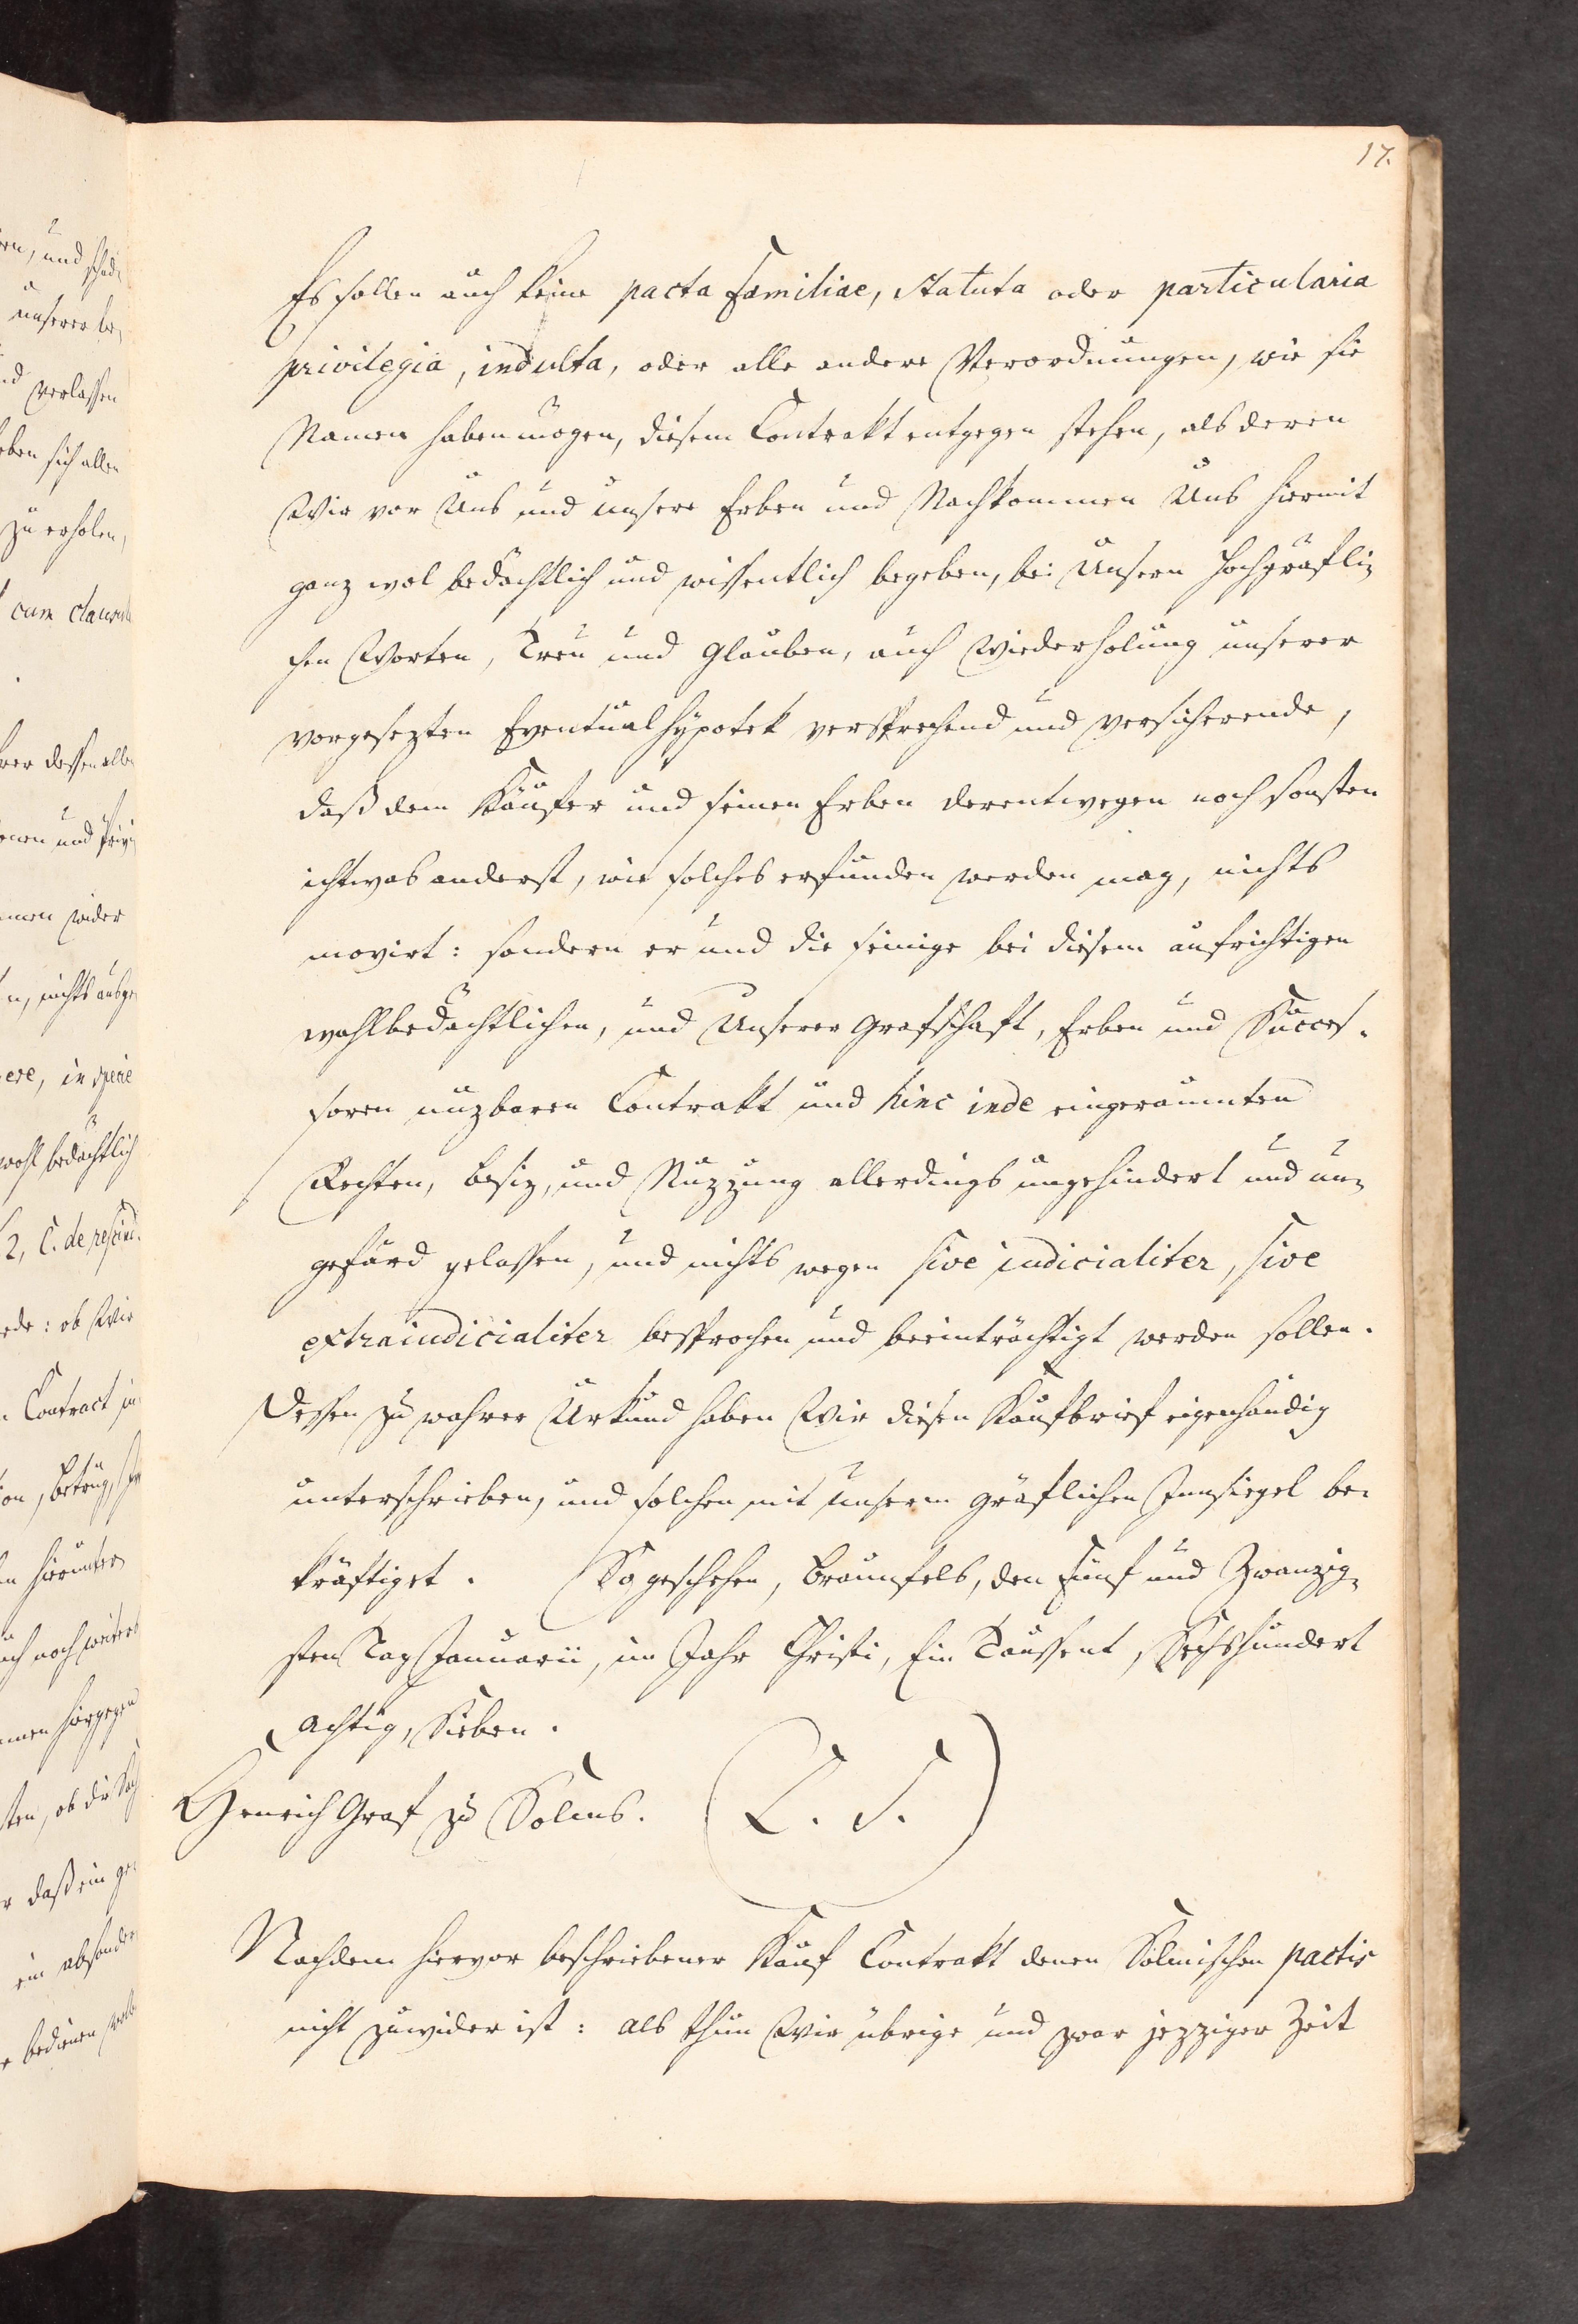 17.
Es sollen auch keine pacta Familiae, statuta oder particularia
privilegia, indulta, oder alle andere Verordnungen, wie sie
Namen haben mögen, diesem Contrakt entgegen stehen, als deren
Wir vor Uns und unsere Erben und Nachkommen Uns hiermit
ganz wol bedächtlich und wissentlich begeben, bei Unsern Hochgräfli-
chen Worten, Treu und Glauben, auch Wiederholung unserer
vorgesezten Eventualhypotek versprechend und versicherende,
daß dem Käufer und seinen Erben derentwegen noch sonsten
ichtwas anderst, wie solches erfunden werden mag, nichts
movirt: sondern er und die seinige bei diesem aufrichtigen
wohlbedächtlichen, und Unserer Grafschaft, Erben und Succes-
soren nuzbaren Contrakt und hinc inde eingeraumten
Rechten, Besiz, und Nuzzung allerdings ungehindert und un-
gefärd gelassen, und nichts wegen sive judicialiter, sive
extraiudicialiter besprochen und beeinträchtigt werden sollen.
Dessen zu wahrer Urkund haben Wir diesen Kaufbrief eigenhändig
unterschrieben, und solchen mit unserm gräflichen Innsiegel be-
kräftiget. So geschehen, Braunfels, den Fünf und Zwanzig-
sten Tag Januarii, im Jahr Christi, Ein Taussent, Sechshundert
achtzig, Sieben.
Henrich Graf zu Solms. (L. S.)
Nachdem hiervor beschriebener Kauf Contrakt denen Solmischen pactis
nicht zuwider ist: als thun Wir übrige und zwar jezziger Zeit